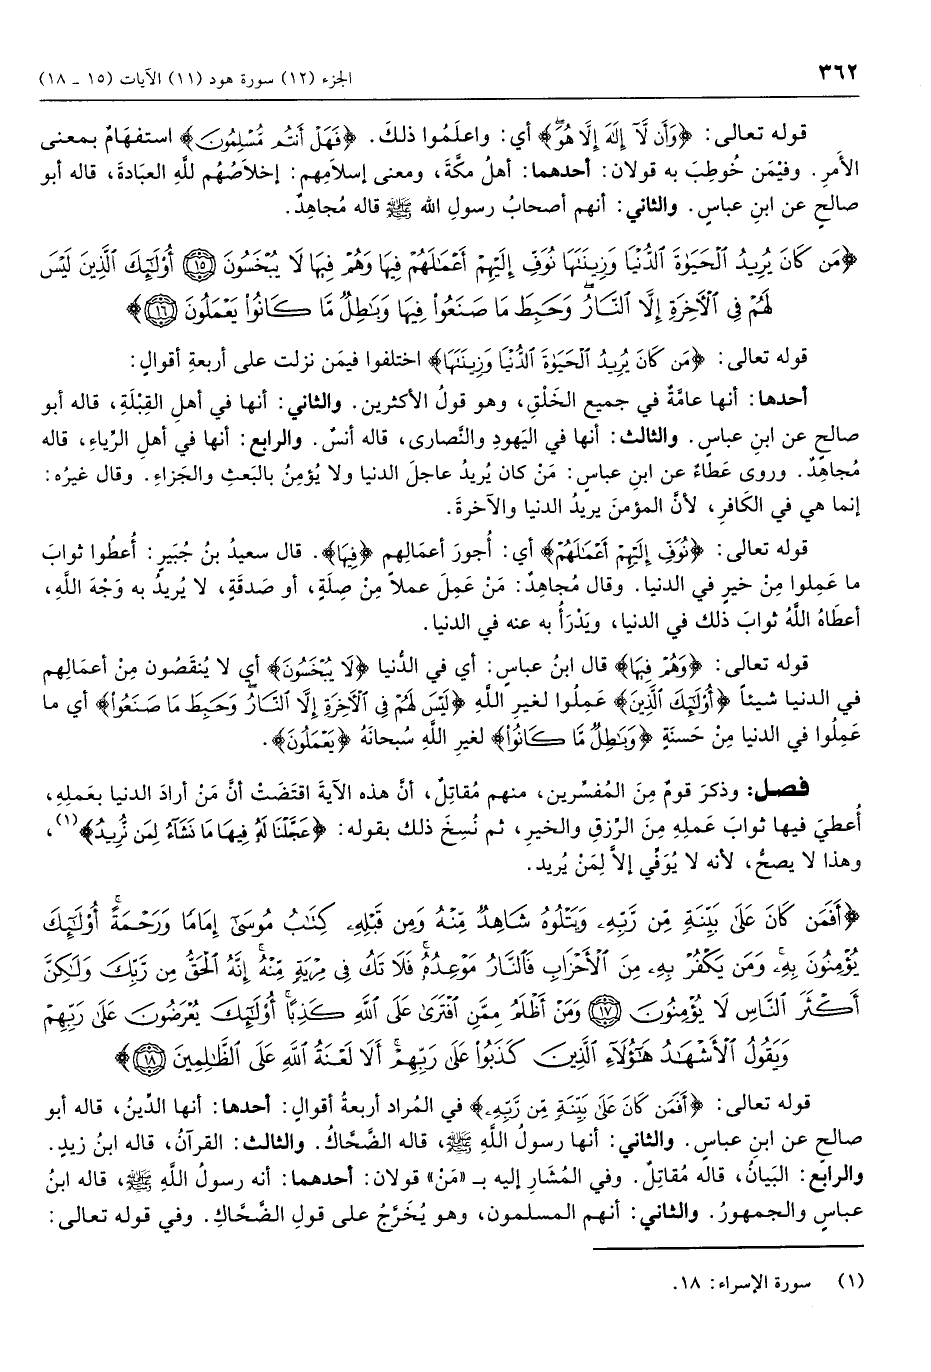 ٣٦٢
الجزء (١٢) سورة هود (١١) الآيات (١٥ ـ ١٨)
قوله تعالى: ﴿وَأَن لَّآ إِلَٰهَ إِلَّا هُوَۖ﴾ أي: واعلَمُوا ذلكَ. ﴿فَهَلْ أَنتُم مُّسْلِمُونَ﴾ استفهَامٌ بمعنى
الأمرِ. وفيْمَن خُوطِبَ به قولان: أحدهما: أهلُ مكَّةَ، ومعنى إسلامِهم: إخلاصُهُم للَّهِ العبَادةَ، قاله أبو
صالحٍ عن ابنِ عباسٍ. والثاني: أنهم أصحابُ رسولِ الله ﷺ قاله مُجاهِدٌ.
﴿مَن كَانَ يُرِيدُ ٱلْحَيَوٰةَ ٱلدُّنْيَا وَزِينَتَهَا نُوَفِّ إِلَيْهِمْ أَعْمَٰلَهُمْ فِيهَا وَهُمْ فِيهَا لَا يُبْخَسُونَ ۝١٥ أُوْلَٰٓئِكَ ٱلَّذِينَ لَيْسَ
لَهُمْ فِي ٱلْأٓخِرَةِ إِلَّا ٱلنَّارُۖ وَحَبِطَ مَا صَنَعُوا۟ فِيهَا وَبَٰطِلٌ مَّا كَانُوا۟ يَعْمَلُونَ ۝١٦﴾
قوله تعالى: ﴿مَن كَانَ يُرِيدُ ٱلْحَيَوٰةَ ٱلدُّنْيَا وَزِينَتَهَا﴾ اختلفوا فيمَن نزلت على أربعةِ أقوالٍ:
أحدها: أنها عامَّةٌ في جميع الخَلْقِ، وهو قولُ الأكثرين. والثاني: أنها في أهلِ القِبْلَةِ، قاله أبو
صالحٍ عن ابنِ عباسٍ. والثالث: أنها في اليَهودِ والنَّصارى، قاله أنسٌ. والرابع: أنها في أهلِ الرِّياءِ، قاله
مُجاهِدٌ. وروى عَطَاءٌ عن ابنِ عباسٍ: مَنْ كان يُريدُ عاجلَ الدنيا ولا يُؤمِنُ بالبَعثِ والجَزاءِ. وقال غيرُه:
إنما هي في الكَافرِ، لأنَّ المؤمنَ يريدُ الدنيا والآخرةَ.
قوله تعالى: ﴿نُوَفِّ إِلَيْهِمْ أَعْمَٰلَهُمْ﴾ أي: أُجورَ أعمَالِهم ﴿فِيهَا﴾. قال سعيدُ بنُ جُبَيرٍ: أُعطُوا ثوابَ
ما عَمِلوا مِنْ خيرٍ في الدنيا. وقال مُجاهِدٌ: مَنْ عَمِلَ عملاً مِنْ صِلَةٍ، أو صَدقَةٍ، لا يُريدُ به وَجْهَ اللَّهِ،
أعطَاهُ اللَّهُ ثوابَ ذلك في الدنيا، ويَدْرَأُ به عنه في الدنيا.
قوله تعالى: ﴿وَهُمْ فِيهَا﴾ قال ابنُ عباسٍ: أي في الدُّنيا ﴿لَا يُبْخَسُونَ﴾ أي لا يُنقَصُون مِنْ أعمَالِهم
في الدنيا شيئاً ﴿أُوْلَٰٓئِكَ ٱلَّذِينَ﴾ عَمِلُوا لغيرِ اللَّهِ ﴿لَيْسَ لَهُمْ فِي ٱلْأٓخِرَةِ إِلَّا ٱلنَّارُۖ وَحَبِطَ مَا صَنَعُوا۟﴾ أي ما
عَمِلُوا في الدنيا مِنْ حَسنَةٍ ﴿وَبَٰطِلٌ مَّا كَانُوا۟﴾ لغيرِ اللَّهِ سُبحانَهُ ﴿يَعْمَلُونَ﴾.
فصل: وذكرَ قومٌ مِنَ المُفسِّرين، منهم مُقاتِلٌ، أنَّ هذه الآيةَ اقتَضَتْ أنَّ مَنْ أرادَ الدنيا بعَملِهِ،
أُعطيَ فيها ثوابَ عَملِهِ مِنَ الرِّزقِ والخيرِ، ثم نُسِخَ ذلك بقوله: ﴿عَجَّلْنَا لَهُۥ فِيهَا مَا نَشَآءُ لِمَن نُّرِيدُ﴾(١)،
وهذا لا يصحُّ، لأنه لا يُوَفِّي إلاَّ لِمَنْ يُريد.
﴿أَفَمَن كَانَ عَلَىٰ بَيِّنَةٍ مِّن رَّبِّهِۦ وَيَتْلُوهُ شَاهِدٌ مِّنْهُ وَمِن قَبْلِهِۦ كِتَٰبُ مُوسَىٰٓ إِمَامًا وَرَحْمَةًۚ أُوْلَٰٓئِكَ
يُؤْمِنُونَ بِهِۦۚ وَمَن يَكْفُرْ بِهِۦ مِنَ ٱلْأَحْزَابِ فَٱلنَّارُ مَوْعِدُهُۥۚ فَلَا تَكُ فِي مِرْيَةٍ مِّنْهُۚ إِنَّهُ ٱلْحَقُّ مِن رَّبِّكَ وَلَٰكِنَّ
أَكْثَرَ ٱلنَّاسِ لَا يُؤْمِنُونَ ۝١٧ وَمَنْ أَظْلَمُ مِمَّنِ ٱفْتَرَىٰ عَلَى ٱللَّهِ كَذِبًاۚ أُوْلَٰٓئِكَ يُعْرَضُونَ عَلَىٰ رَبِّهِمْ
وَيَقُولُ ٱلْأَشْهَٰدُ هَٰٓؤُلَآءِ ٱلَّذِينَ كَذَبُوا۟ عَلَىٰ رَبِّهِمْۚ أَلَا لَعْنَةُ ٱللَّهِ عَلَى ٱلظَّٰلِمِينَ ۝١٨﴾
قوله تعالى: ﴿أَفَمَن كَانَ عَلَىٰ بَيِّنَةٍ مِّن رَّبِّهِۦ﴾ في المُراد أربعةُ أقوالٍ: أحدها: أنها الدِّينُ، قاله أبو
صالحٍ عن ابنِ عباسٍ. والثاني: أنها رسولُ اللَّهِ ﷺ، قاله الضَّحّاكُ. والثالث: القرآنُ، قاله ابنُ زيدٍ.
والرابع: البَيانُ، قاله مُقاتِلٌ. وفي المُشَارِ إليه بـ «مَنْ» قولان: أحدهما: أنه رسولُ اللَّهِ ﷺ، قاله ابنُ
عباسٍ والجمهورُ. والثاني: أنهم المسلمون، وهو يُخَرَّجُ على قولِ الضَّحّاكِ. وفي قوله تعالى:
(١) سورة الإسراء: ١٨.